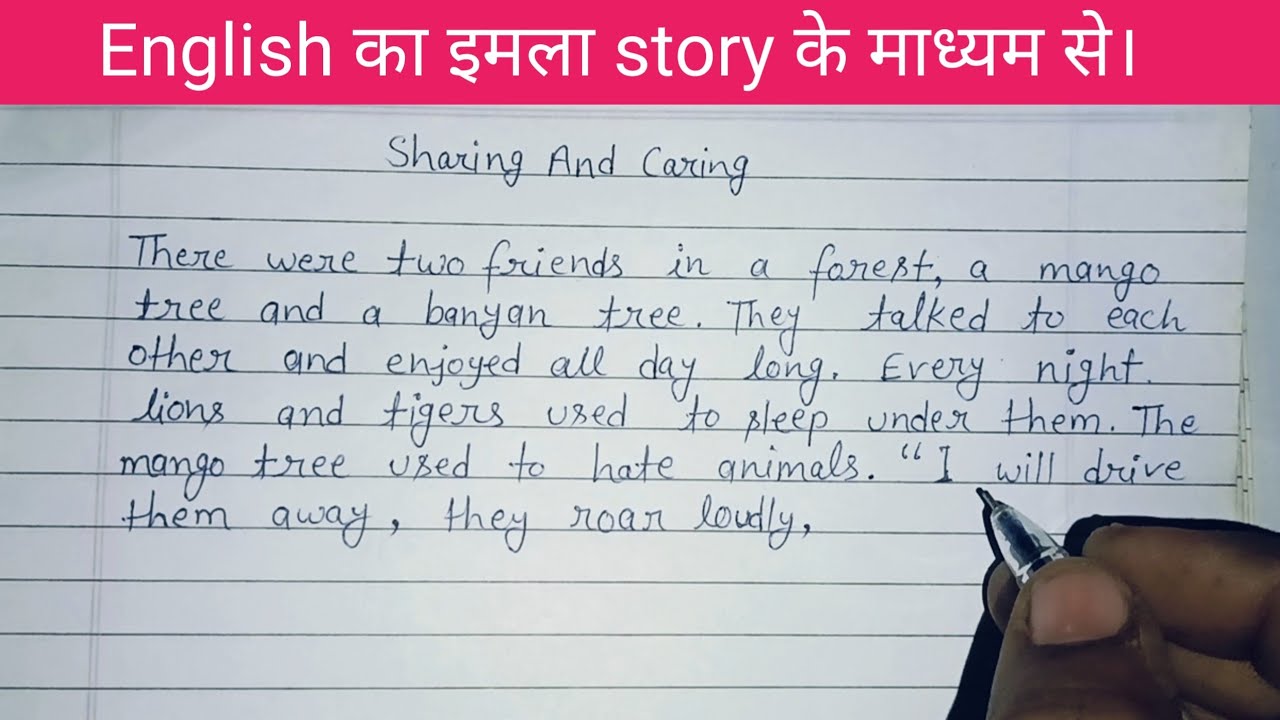 English का इमला story के माध्यम से।
Sharing And Caring
There were two friends in a forest, a mango
tree and a banyan tree. They talked to each
other and enjoyed all day long. Every night
lions and tigers used to sleep under them. The
mango tree used to hate animals. “I will drive
them away, they roar loudly,